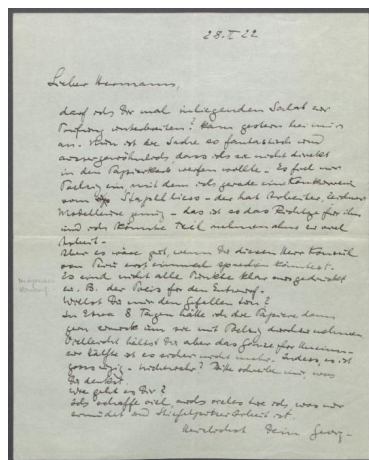 28.I 22
Lieber Hermann,
darf ich Dir mal inliegenden Salat zur
Prüfung unterbreiten? Kam gestern bei mir
an. Nun ist die Sache so fantastisch und
aussergewöhnlich, dass ich sie nicht direkt
in den Papierkorb werfen wollte. Es fiel mir
ein, mit dem ich gerade eine Konkurrenz
vom Stapel liess - der hat Arbeiter, Zeichner
- das ist so das Richtige für ihn
und ich könnte Teil nehmen ohne zu viel
Arbeit -
Aber es wäre gut, wenn Du diesen Herr Konsul
von Peru erst einmal sprechen könntest.
Es sind nicht alle Punkte klar ausgedrückt
z. B. der Preis für den Entwurf.
Willst Du mir den Gefallen tun?
In etwa 8 Tagen hätte ich die Papiere dann
gern zurück um sie mit durchzunehmen
Vielleicht hältst Du aber das Ganze für Unsinn -
zur Hälfte ist es sicher nicht mehr. Indess, es ist
grosszügig - nichtwahr? Bitte schreibe mir, was
Du denkst.
Wie geht es Dir?
Ich schaffe viel, auch vieles was
ermüdet und Arbeit ist.
Herzlichst Dein Georg -